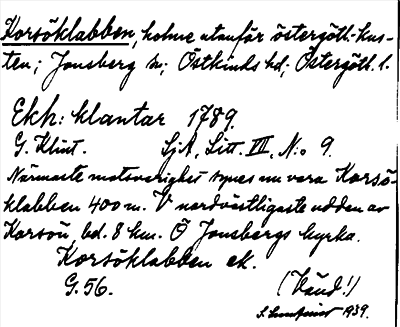 Korsöklabben, holme utanför östergöt.-kus-
ten; Jonsberg sn; Östkinds hd; Östergötl. l.
Ekh: klantar 1789.
G. Klint. SjA, Litt. VII, N:o 9.
Närmaste motsvarighet synes nu vara Korsö-
klabben 400 m. V nordvästligaste udden av
Korsön, bd. 8 km. Ö Jonsbergs kyrka.
Korsöklabben ek.
G. 56. (Vänd!)
1939.